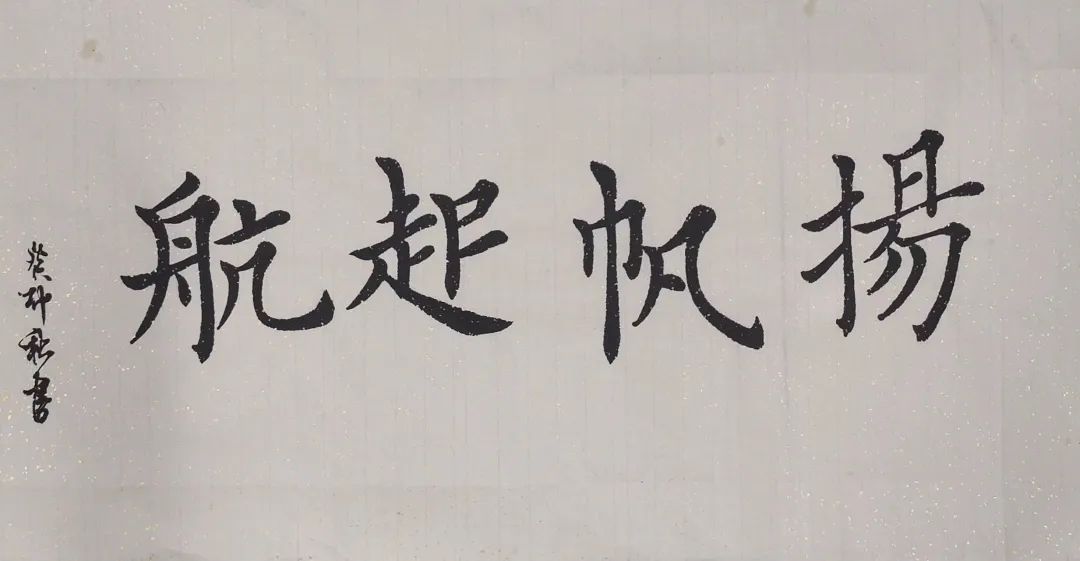 揚帆起航
癸卯秋書